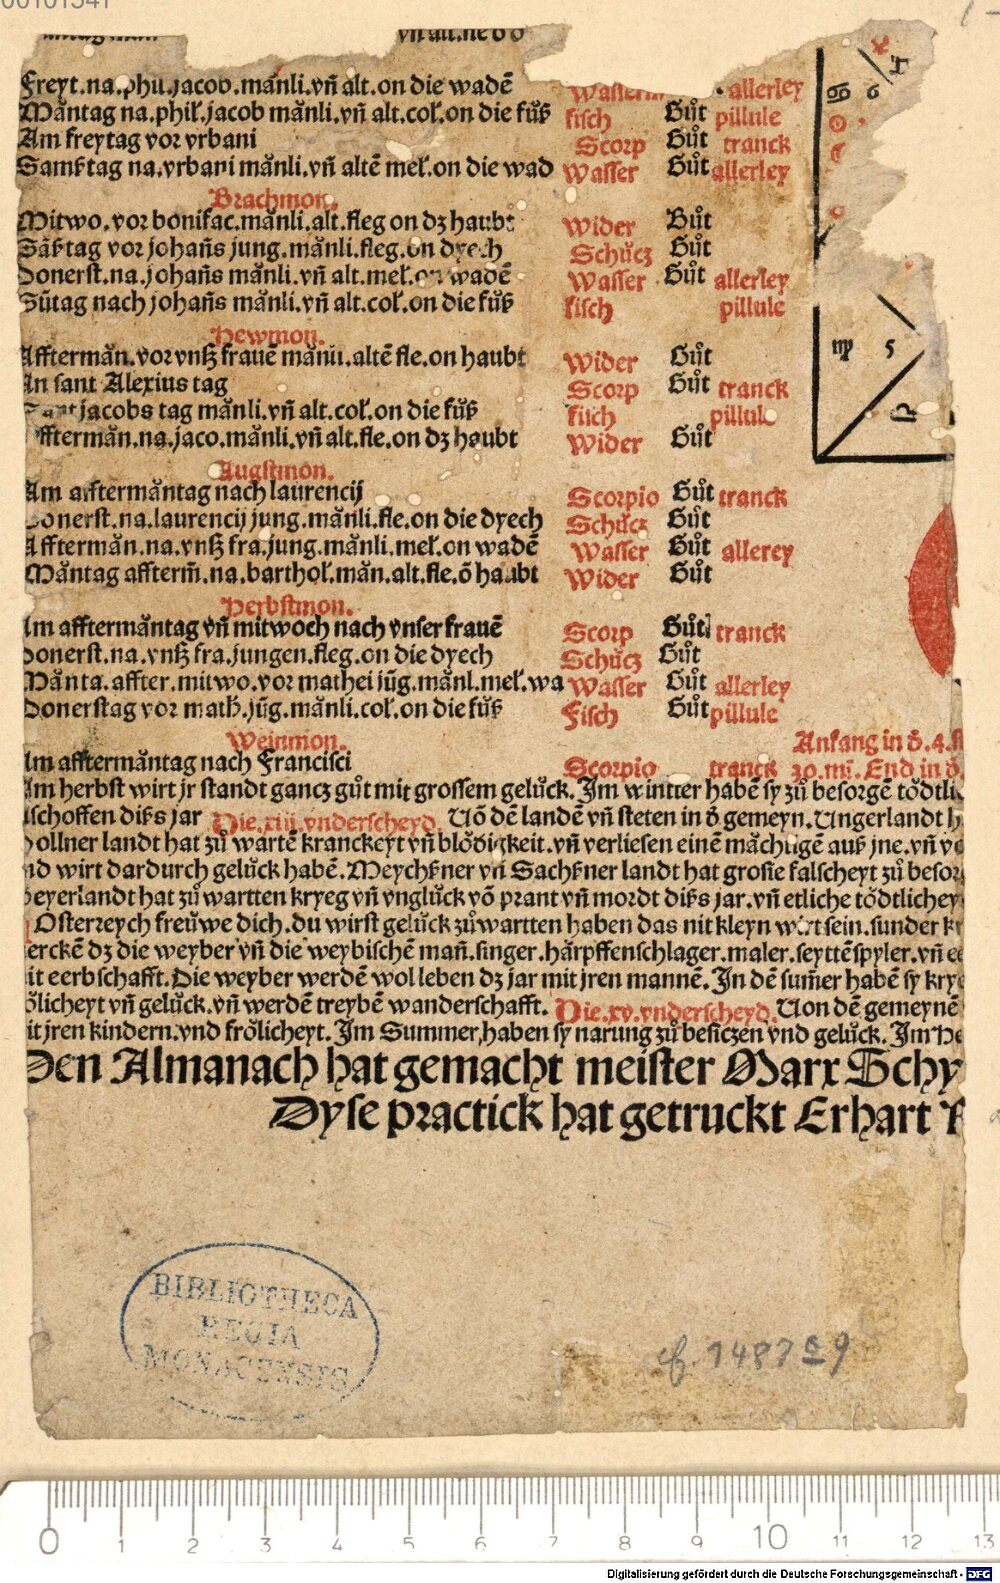 vñ alt.
Freyt.na.phil.jacob.mãnli.vñ alt.on die wadẽ Wasserm allerley
Mãntag na.phil.jacob mãnli.vñ alt.col.on die füß fisch Gůt pillule
Am freytag vor vrbani Scorp Gůt tranck
Sambtag na.vrbani mãnli.vñ altẽ mel.on die wad Wasser Gůt allerley
Brachmon.
Mitwo.vor bonifac.mãnli.alt.fleg on dz haubt Wider Gůt
Sãbtag vor johañs jung.mãnli.fleg.on dyech Schücz Gůt
Donerst.na.johañs mãnli.vñ alt.mel.on wadẽ Wasser Gůt allerley
Sũtag nach johañs mãnli.vñ alt.col.on die füß fisch pillule
Hewmon.
Afftermãn.vor vnß frauẽ mãnli.altẽ fle.on haubt Wider Gůt
In sant Alexius tag Scorp Gůt tranck
jacobs tag mãnli.vñ alt.col.on die füß fisch pillule
Afftermãn.na.jaco.mãnli.vñ alt.fle.on dz haubt Wider Gůt
Augstmon.
Am afftermãntag nach laurencij Scorpio Gůt tranck
Donerst.na.laurencij jung.mãnli.fle.on die dyech Schücz Gůt
Afftermãn.na.vnß fra.jung.mãnli.mel.on wadẽ Wasser Gůt allerey
Mãntag affterm̃.na.barthol.mãn.alt.fle.õ haubt Wider Gůt
Herbstmon.
Am afftermãntag vñ mitwoch nach vnser frauẽ Scorp Gůt tranck
Donerst.na.vnß fra.jungen.fleg.on die dyech Schücz Gůt
Mãnta.affter.mitwo.vor mathei jũg.mãnl.mel.wa Wasser Gůt allerley
Donerstag vor math.jũg.mãnli.col.on die füß Fisch Gůt pillule
Weinmon. Anfang in d.4.
Am afftermãntag nach Francisci Scorpio tranck 30.mi. End in d.
Im herbst wirt jr standt gancz gůt mit grossem gelück. Im wintter habẽ sy zů besorgẽ tödtli
schoffen diß jar Die.xiiij.vnderscheyd. Uõ dẽ landẽ vñ steten in d gemeyn. Ungerlandt h
ollner landt hat zů wartẽ kranckeyt vñ blödigkeit.vñ verliesen einẽ mãchtigẽ auß jne.vñ v
nd wirt dardurch gelück habẽ. Meychßner vñ Sachßner landt hat grosse falscheyt zů besor
beyerlandt hat zů wartten kryeg vñ vnglück võ prant vñ mordt diß jar.vñ etliche tödtlichey
Osterzeych freüwe dich.du wirst gelück zů wartten haben das nit kleyn wirt sein.sunder kr
ierckẽ dz die weyber vñ die weybischẽ mañ.singer.hãrpffenschlager.maler.seyttẽspyler.vñ e
it eerbschafft. Die weyber werdẽ wol leben dz jar mit jren mannẽ. In dẽ sum̃er habẽ sy krye
ölicheyt vñ gelück.vñ werdẽ treybẽ wanderschafft. Die.xv.vnderscheyd. Uon dẽ gemeynẽ
it jren kindern.vnd frölicheyt. Im Summer,haben sy narung zů besiczen vnd gelück. Im He
Den Almanach hat gemacht meister Marx Schy
Dyse practick hat getruckt Erhart R
BIBLIOTHECA
REGIA
MONACENSIS
cf. 1487
0 1 2 3 4 5 6 7 8 9 10 11 12 13
Digitalisierung gefördert durch die Deutsche Forschungsgemeinschaft - DFG